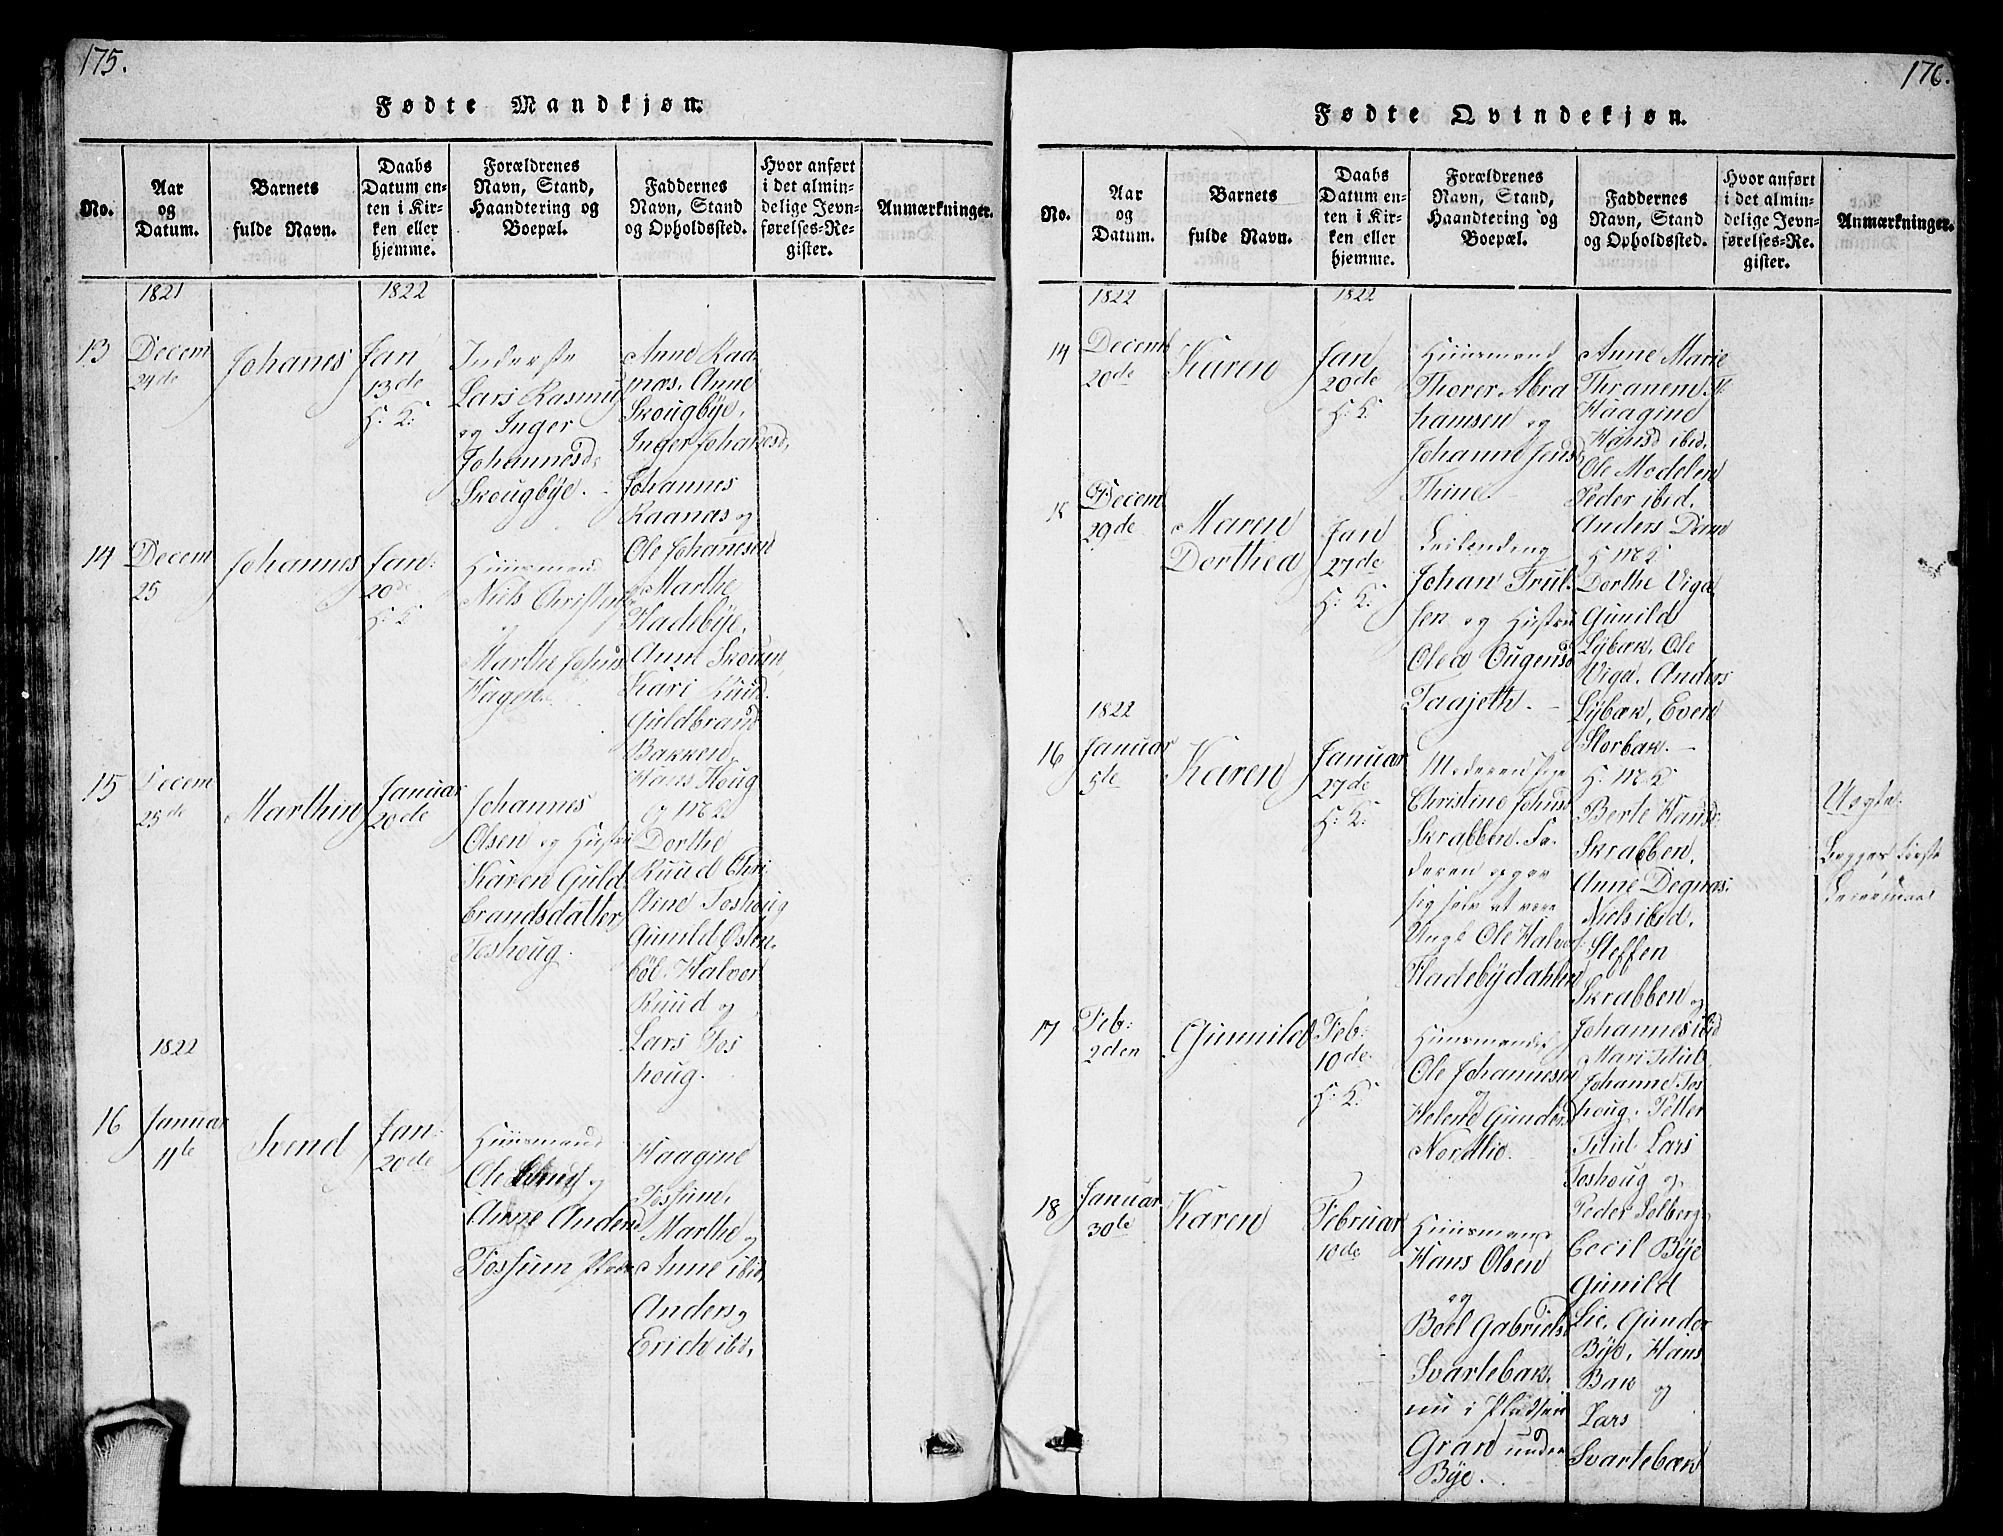 175.
Fødte Mandkjøn.
No.
Aar
og
Datum.
Barnets
fulde Navn.
Daabs
Datum en-
ten i Kir-
ken eller
hjemme.
Forældrenes
Navn, Stand,
Haandtering og
Boepæl.
Faddernes
Navn, Stand
og Opholdssted.
Hvor anført
i det almin-
delige Jevn-
førelses-Re-
gister.
Anmærkninger.
1821
1822
13
Decem
24de
Johanes
Jan
13de
H: K:
Inderste
Lars Rasmus
og Inger
Johannesd
Skougbye.
Anne Raa
nas. Anne
Skougbye,
Inger Johanesd,
Johannes
Raanas og
Ole Johanesen
14
Decem
25
Johannes
Jan:
20de
H: K
Huusmand
Niels Christens
og
Marthe Johns
Hagen.
Marthe
Fladebye,
Anne Skoum,
Kari Ruud.
Guldbrand
Bakken,
Hans Houg
15
Decem
25de
Marthin
Januar
20de
Johannes
Olsen og Hustru
Karen Guld
brandsdatter
Toshoug.
Dorthe
Ruud Chri
stine Toshoug
Gunild Østen
böl. Halvor
Ruud og
Lars Tos
houg.
1822
16
Januar
11te
Svend
Jan:
20de
Huusmand
Ole
og
Anne Andersd
Fossum
Haagine
Fossum,
Marthe og
Anne ibid,
Anders og
Erich ibid,
176.
Fødte Qvindekjøn.
No.
Aar
og
Datum.
Barnets
fulde Navn.
Daabs
Datum en-
ten i Kir-
ken eller
hjemme.
Forældrenes
Navn, Stand,
Haandtering og
Boepæl.
Faddernes
Navn, Stand
og Opholdssted.
Hvor anført
i det almin-
delige Jevn-
førelses-Re-
gister.
Anmærkninger.
1822
1822
14
Decemb
20de
Karen
Jan
20de
H: K:
Huusmand
Thorer Abra
hamsen og
Johanne Jensd
Thine.
Anne Marie
Thranem
Haagine
Hansd ibid,
Ole Modelen
Peder ibid.
Anders Dam
15
Decem
29de
Maren
Dorthea
Jan
27de
H: K:
Leilending
Johan Trul
sen og Hustru
Olea Eugensd
Taajeth.
H M K
Dorthe Viga
Gunild
Lybæk, Ole
Viga. Anders
Lybæk, Even
Storbak.
1822
16
Januar
5te
Karen
Januar
27de
H: K:
Moderen Pige
Christine Johnsd
Skrabben. Fa
deren opgav
sig selv at være
Ungk Ole Halvors
Fladebydahlen
H: M K
Berte Hansd:
Skrabben,
Anne Degnas:
Niels ibid.
Steffen
Skrabben og
Johannes ibid
Uægte
Begges første
Leiermaal
17
Feb:
2den
Gunnild
Feb:
10de
H: K:
Huusmandt
Ole Johannesen
og
Helene Gunders
Nordlie.
Mari Titub
Johanne Tos
houg. Petter
Titub Lars
Toshoug og
Peder Solberg
18
Januar
30te
Karen
Februar
10de
Huusmand
Hans Olsen
og
Böel Gabrielsd
Svartebak,
nu i Pladsen
Gran under
Bye.
Cecil Bye
Gunild
Lie, Gunder
Bye, Hans
Bak og
Lars
Svartebæk